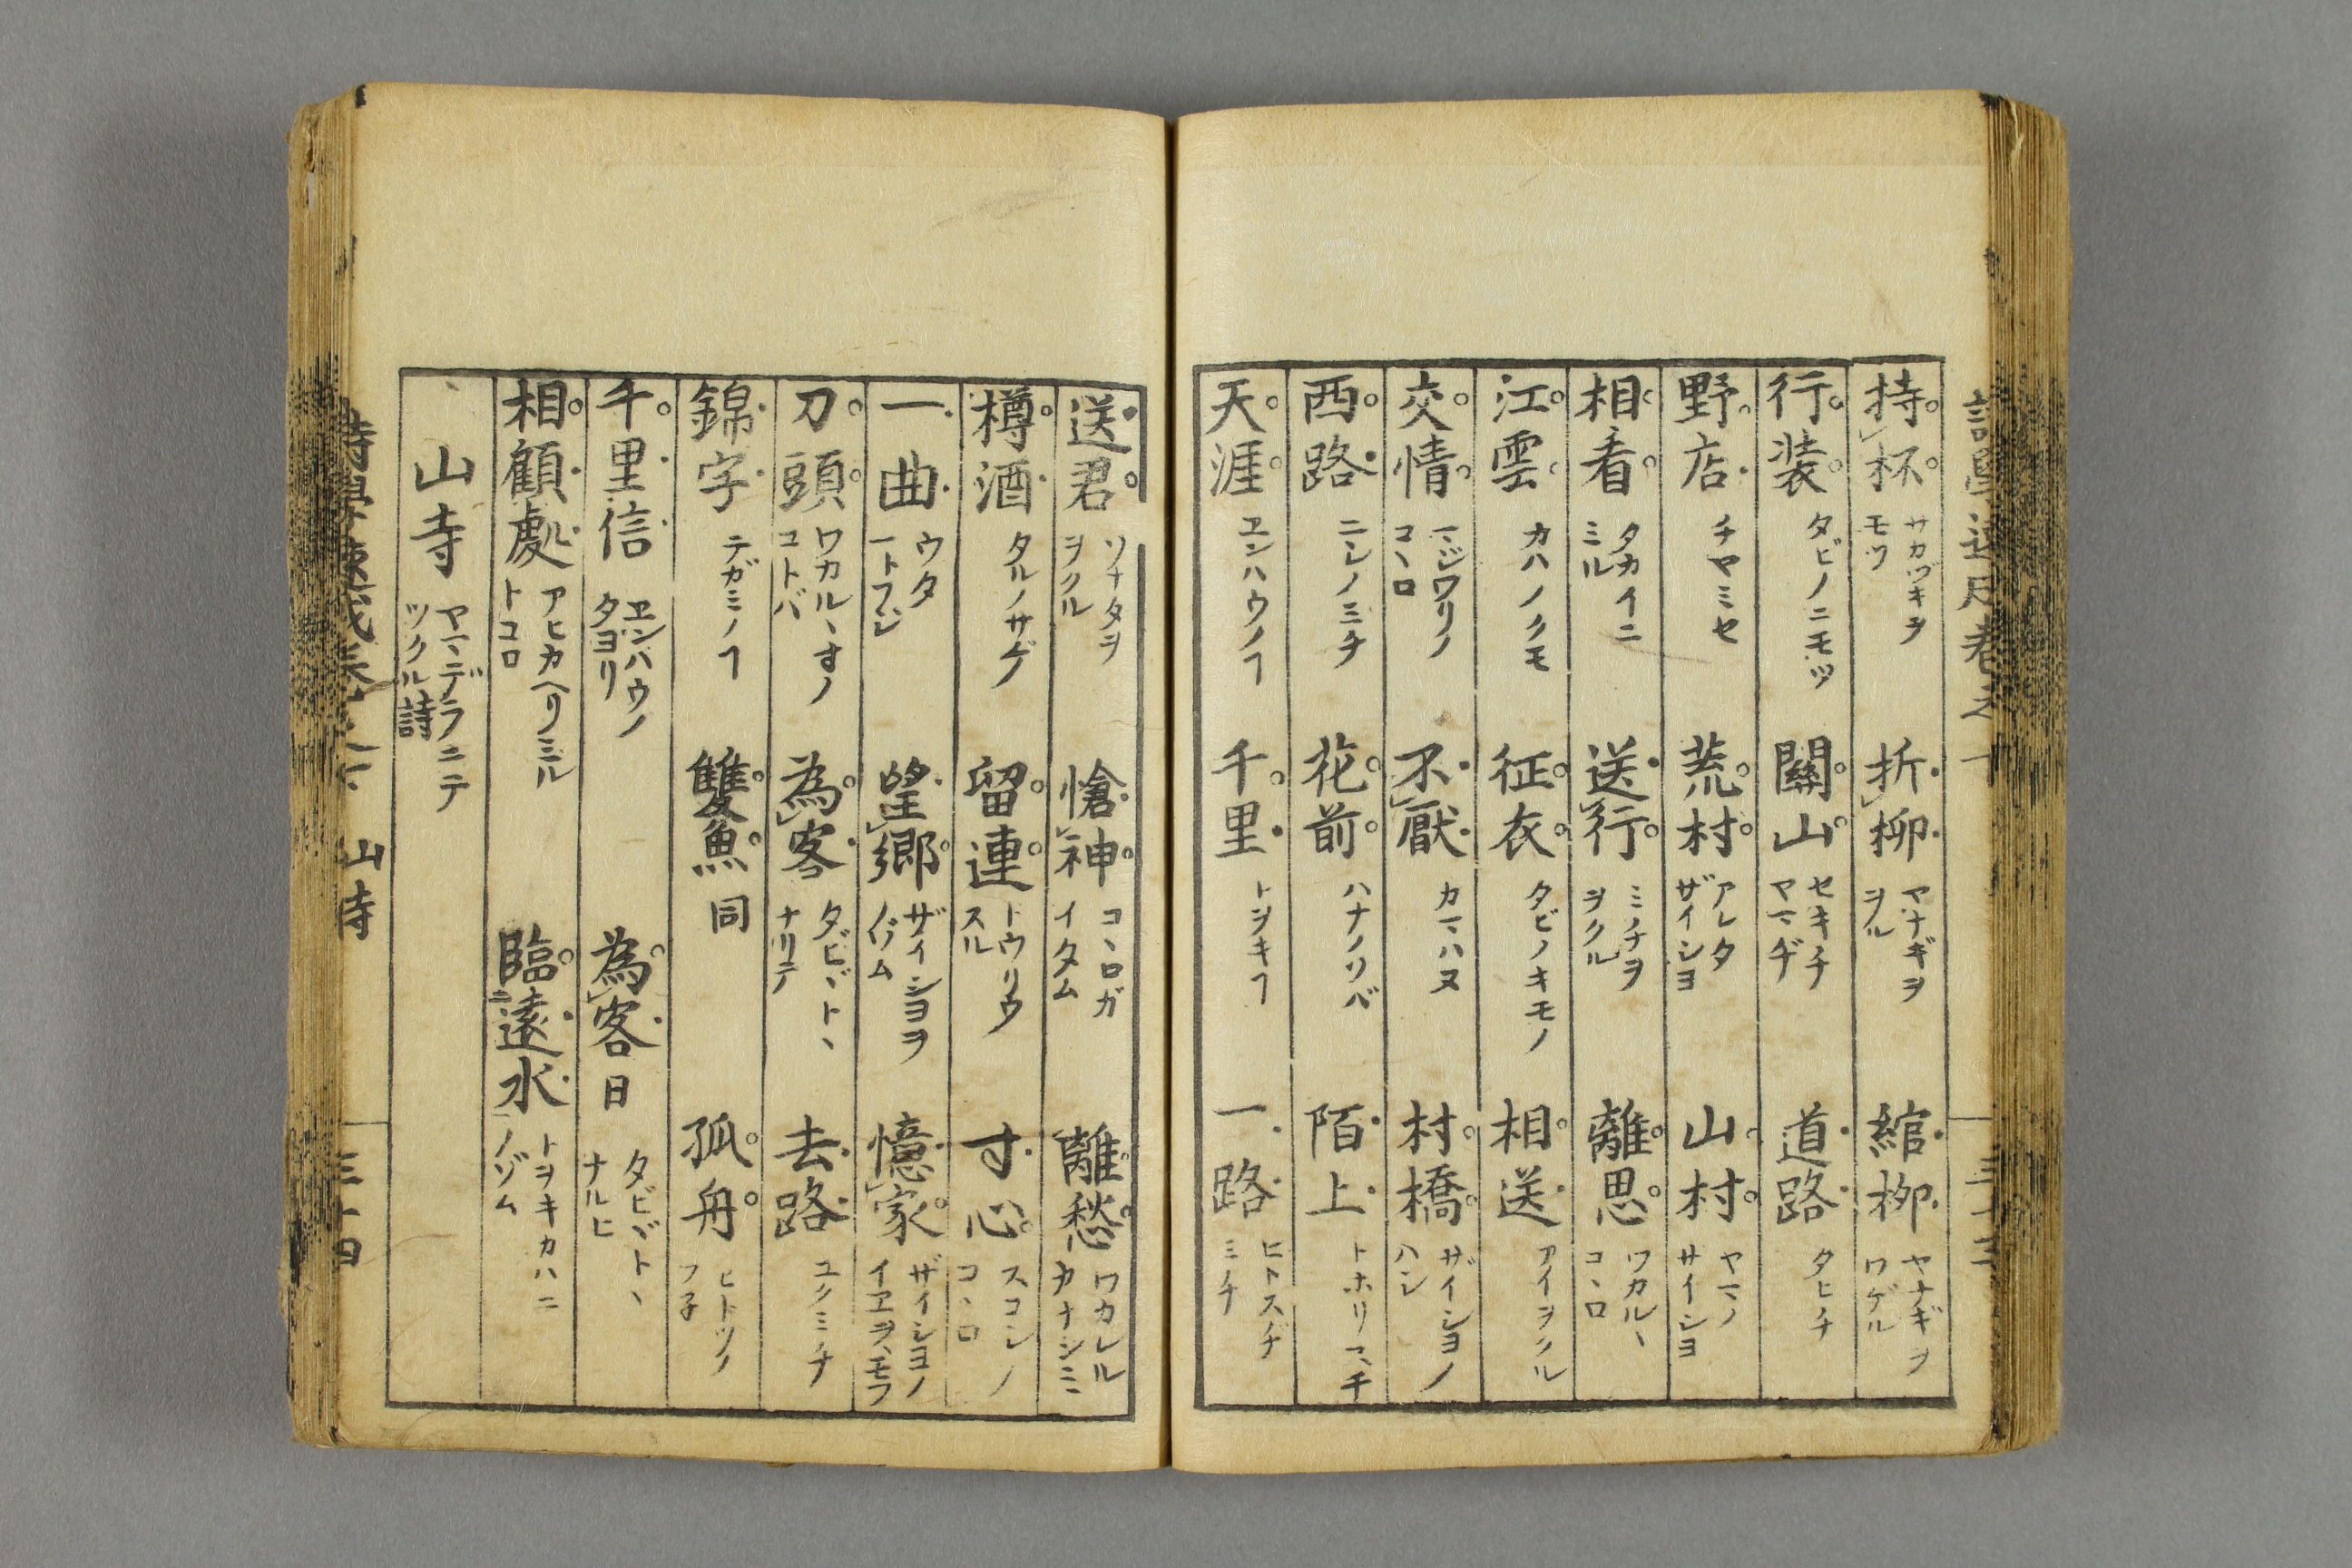 持杯 サカヅキヲモツ 折柳 ヤナギヲヲル 綰栁 ヤナギヲワゲル
行装 タビノニモツ 關山 セキチヤマヂ 道路 タヒチ
野店 チヤミセ 荒村 アレタザイシヨ 山村 ヤマノサイシヨ
相看 タカイニミル 送行 ミチヲヲクル 離思 ワカルヽコヽロ
江雲 カハノクモ 征衣 タビノキモノ 相送 アイヲクル
交情 マジワリノコヽロ 不厭 カマハヌ 村橋 ザイシヨノハシ
西路 ニシノミチ 花前 ハナノソバ 陌上 トホリマチ
天涯 ヱンハウノヿ 千里 トヲキヿ 一路 ヒトスヂミチ
送君 ソナタヲヲクル 愴神 コヽロガイタム 離愁 ワカレルカナシミ
樽酒 タルノサケ 留連 トウリウスル 寸心 スコシノコヽロ
一曲 ウタ一トフシ 望郷 ザイシヨヲノゾム 憶家 ザイシヨノイヱヲヽモフ
刀頭 ワカルヽコトバ 為客 タビヾトヽナリテ 去路 ユクミチ
錦字 テガミノヿ 雙魚 同 孤舟 ヒトツノフ子
千里信 ヱンハウノタヨリ 為客日 タビヾトヽナルヒ
相顧處 アヒカヘリミルトコロ 臨遠水 トヲキカハニノゾム
山寺 ヤマデラニテツクル詩
山寺
三十四